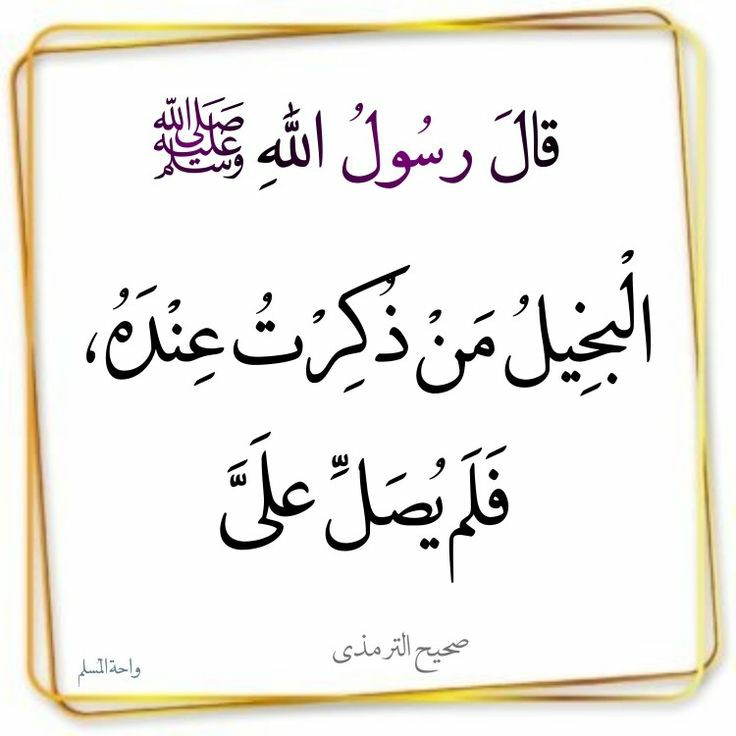 قالَ رسُولُ اللهِ ﷺ
الْبخِيلُ مَنْ ذُكِرْتُ عِنْدَهُ،
فَلَم يُصَلِّ علَىَّ
صحيح الترمذى
واحة المسلم